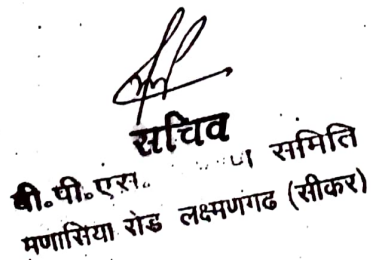 सचिव
बी.पी.एस. समिति
मणासिया रोड लक्ष्मणगढ (सीकर)